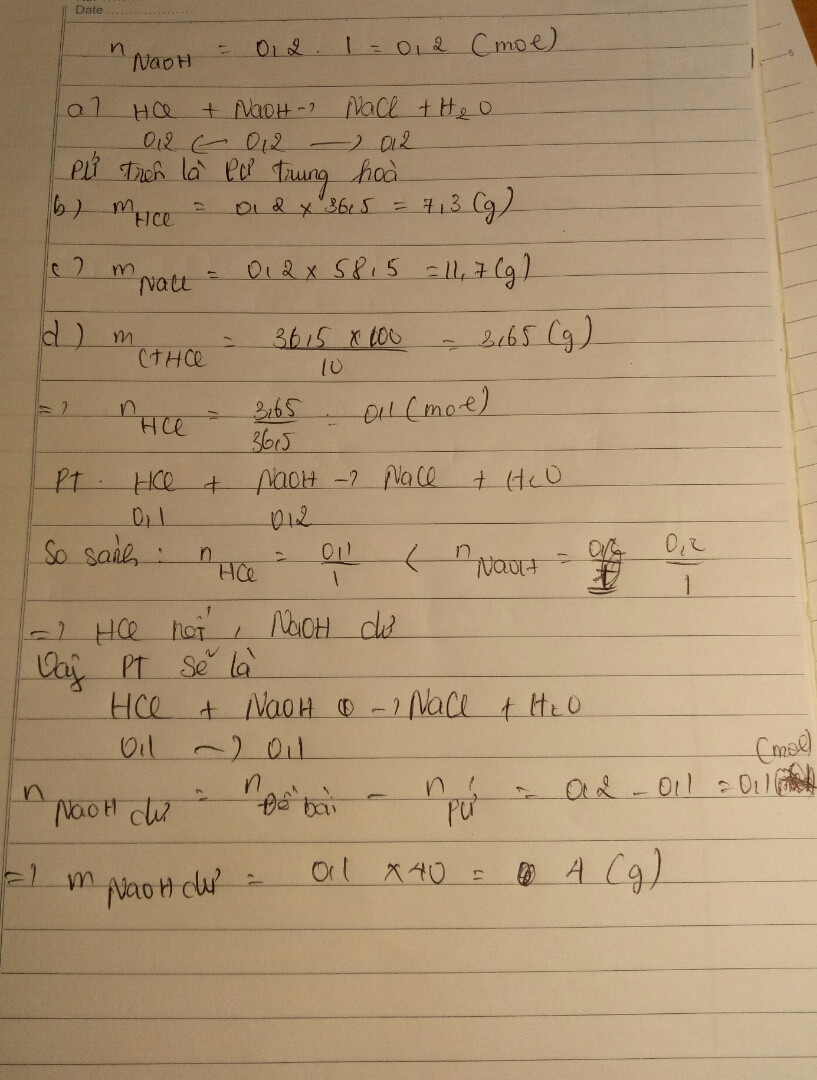 Date
n NaOH = 0,2 . 1 = 0,2 (mol)
a) HCl + NaOH -> NaCl + H2O
0,2 <- 0,2 -> 0,2
PƯ trên là PƯ trung hoà
b) m HCl = 0,2 x 36,5 = 7,3 (g)
c) m NaCl = 0,2 x 58,5 = 11,7 (g)
d) m CTHCl = 36,5 x 100 / 10 = 3,65 (g)
=> n HCl = 3,65 / 36,5 = 0,1 (mol)
PT. HCl + NaOH -> NaCl + H2O
0,1 0,2
So sánh : n HCl = 0,1 / 1 < n NaOH = 0,2 / 1
=> HCl hết, NaOH dư
Vậy PT sẽ là
HCl + NaOH -> NaCl + H2O
0,1 -> 0,1
n NaOH dư = n Đề bài - n PƯ = 0,2 - 0,1 = 0,1 (mol)
=> m NaOH dư = 0,1 x 40 = 4 (g)